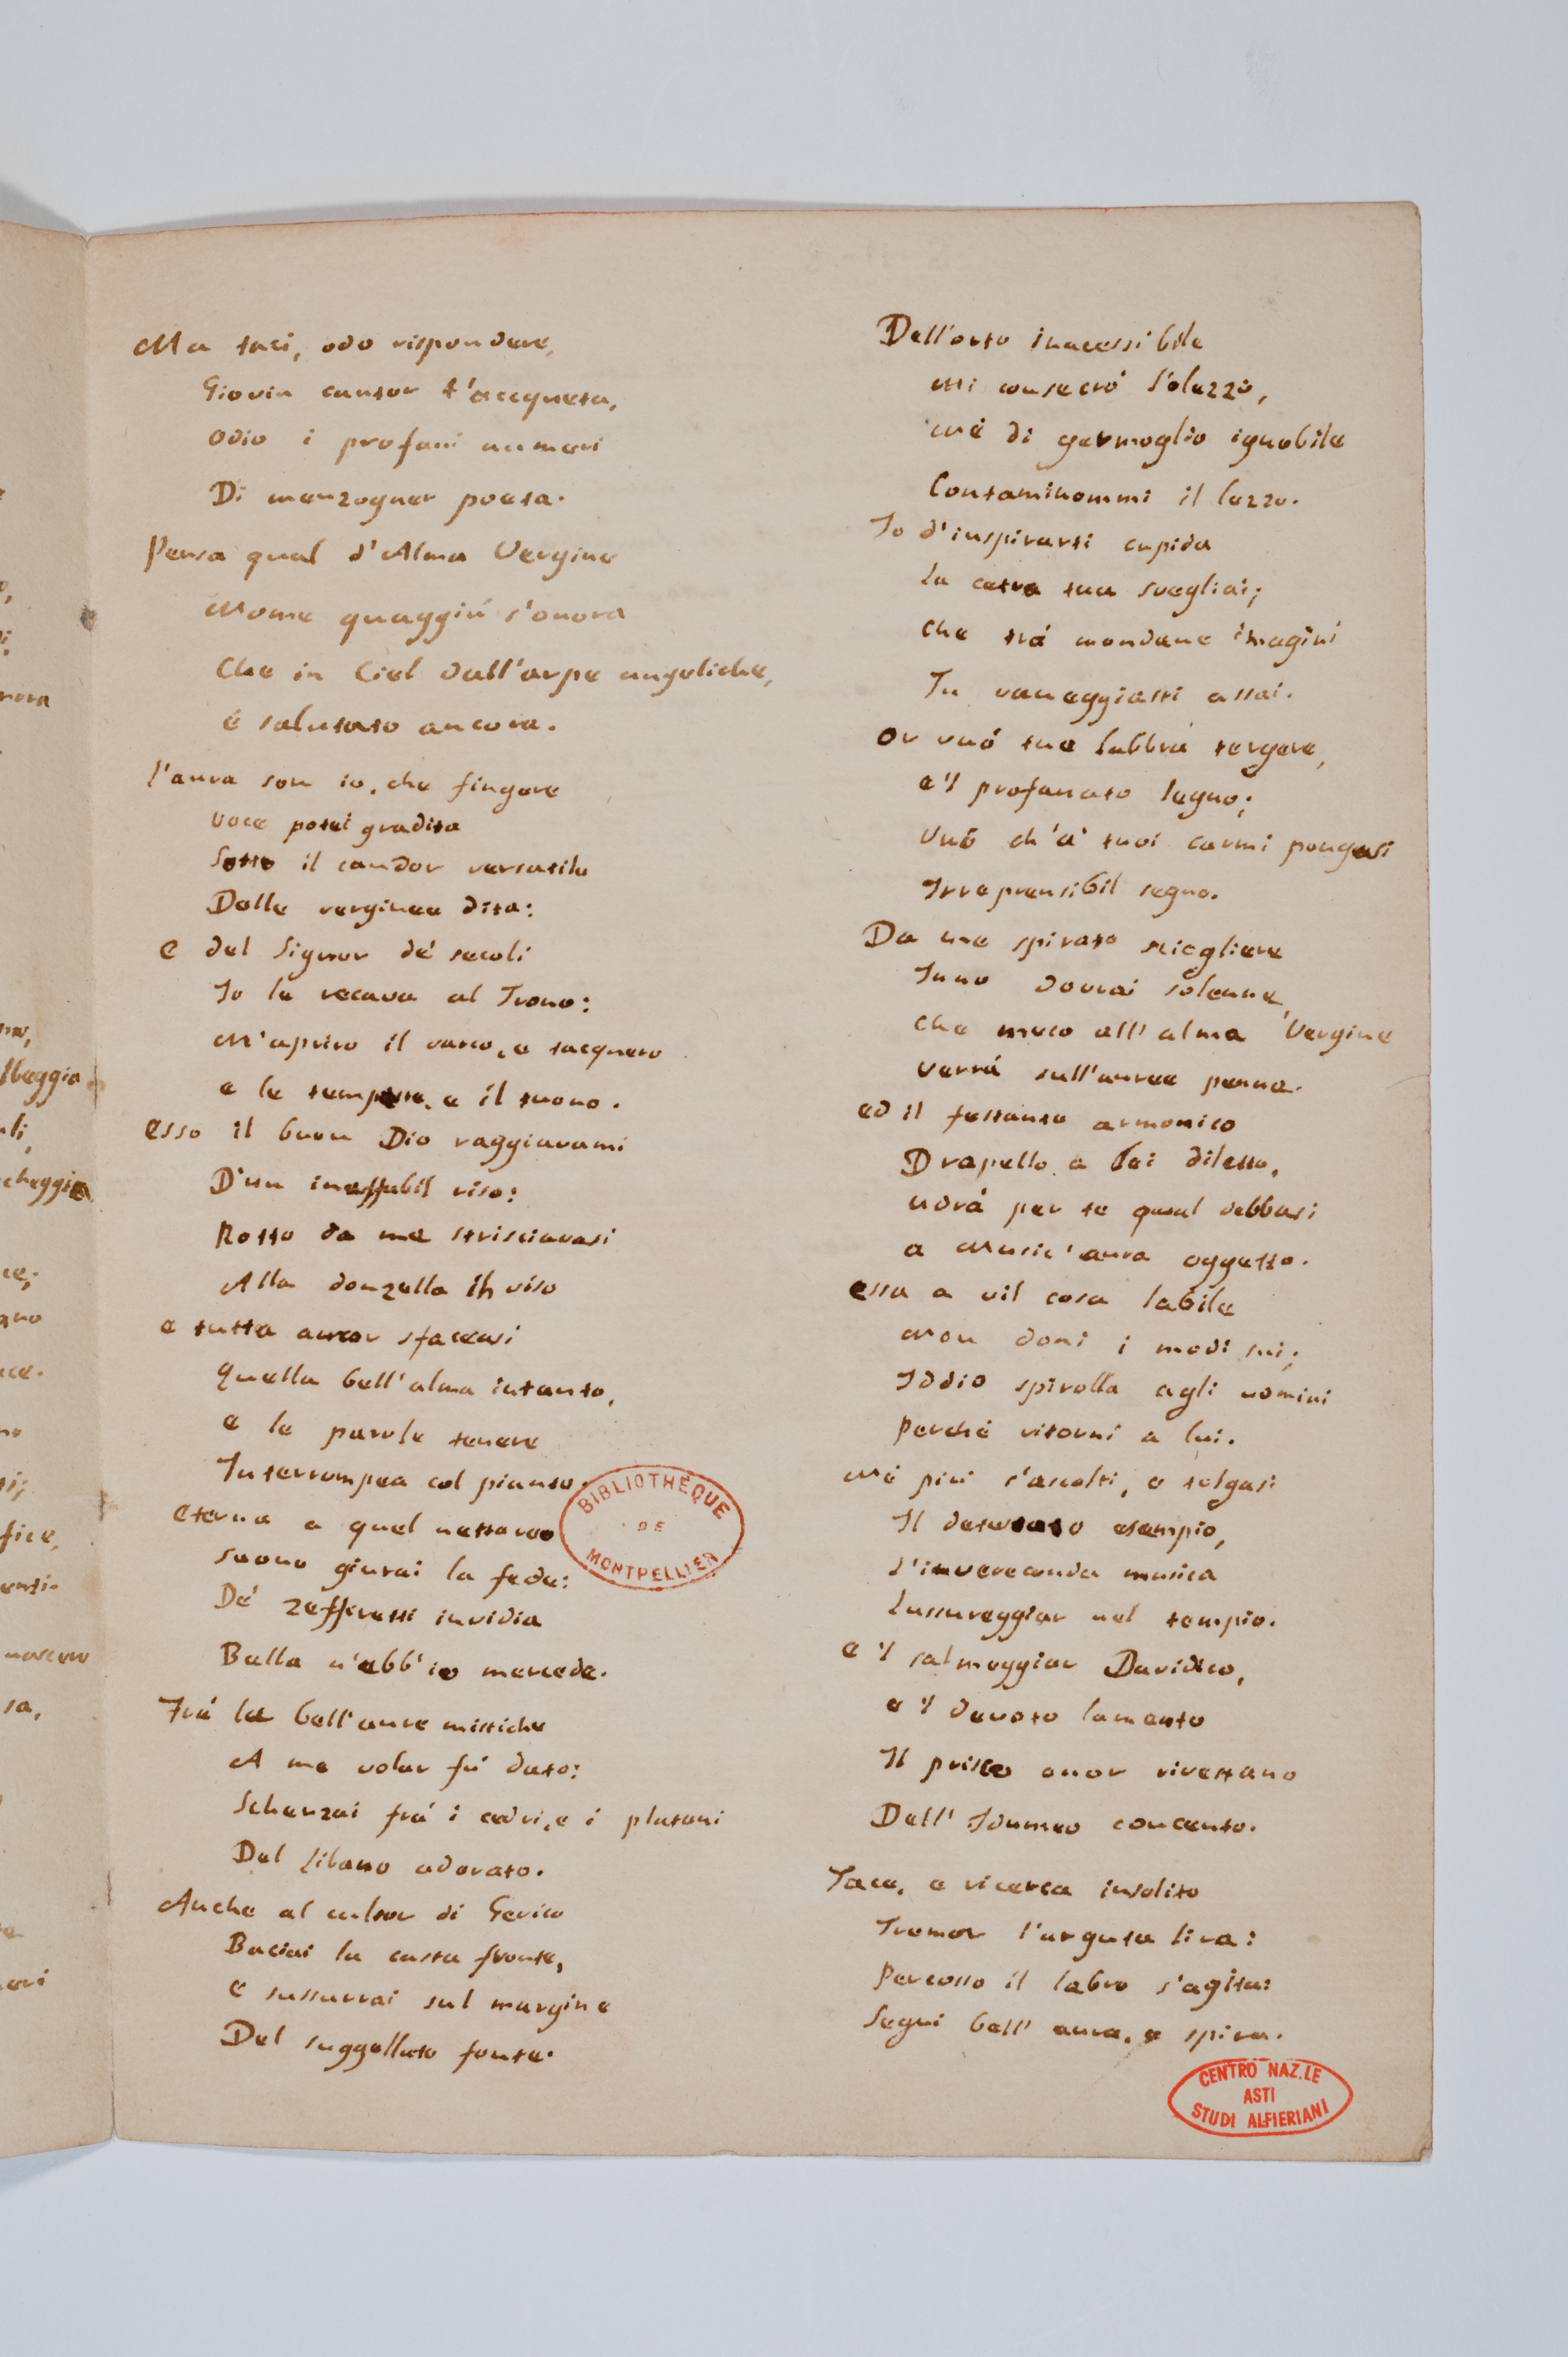 Ma taci, odo rispondere,
Giovin cantor t'accqueta,
Odio i profani numeri
Di menzogner poeta.
Pensa qual d'Alma Vergine
Nome quaggiú s'onora
Che in Ciel dall'arpe angeliche,
é salutato ancora.
l'aura son io, che fingere
voce potei gradita
Sotto il candor versatile
Delle verginee dita:
e del Signor dé secoli
Io la recava al Trono:
M'apriro il varco, e tacquero
e le tempeste, e il tuono.
esso il buon Dio raggiavami
D'un ineffabil riso:
Rotto da me strisciavasi
Alla donzella in viso
e tutta ancor sfaceasi
Quella bell'alma intanto,
e le parole tenere
Interrompea col pianto.
eterna a quel nettareo
suono giurai la fede:
Dé zeffiretti invidia
Bella n'ebb'io mercede.
Frá le bell'aure mistiche
A me volar fú dato:
Scherzai frá i cedri, e i platani
Del Libano odorato.
Anche al cultor di Gerico
Baciai la casta fronte,
e sussurrai sul margine
Del suggellato fonte.
BIBLIOTHÈQUE
DE
MONTPELLIER
Dell'orto inacessibile
Mi consecró l'olezzo,
Né di germoglio ignobile
Contaminommi il lezzo.
Io d'inspirarti cupida
la cetra tua svegliai;
che trá mondane imagini
Tu vaneggiasti assai.
Or vuó tue labbra tergere,
e'l profanato legno;
vuó ch'a' tuoi carmi pongasi
Irreprensibil segno.
Da me spirato sciogliere
Inno dovrai solenne,
che meco all'alma Vergine
verrá sull'auree penne.
ed il festante armonico
Drapello a Lei diletto,
udrá per te qual debbasi
a Music'aura oggetto.
essa a vil cosa labile
Non doni i modi sui;
Iddio spirolla agli uomini
Perché ritorni a lui.
Né piú s'ascolti, e tolgasi
Il detestato esempio,
l'invereconda musica
lussureggiar nel tempio.
e'l salmeggiar Davidico,
e'l devoto lamento
Il prisco onor rivestano
Dell'Idumeo concento.
Tace, e ricerca insolito
Tremor l'arguta lira:
Percosso il labro s'agita:
Segui bell'aura, e spira.
CENTRO NAZ.LE
ASTI
STUDI ALFIERIANI